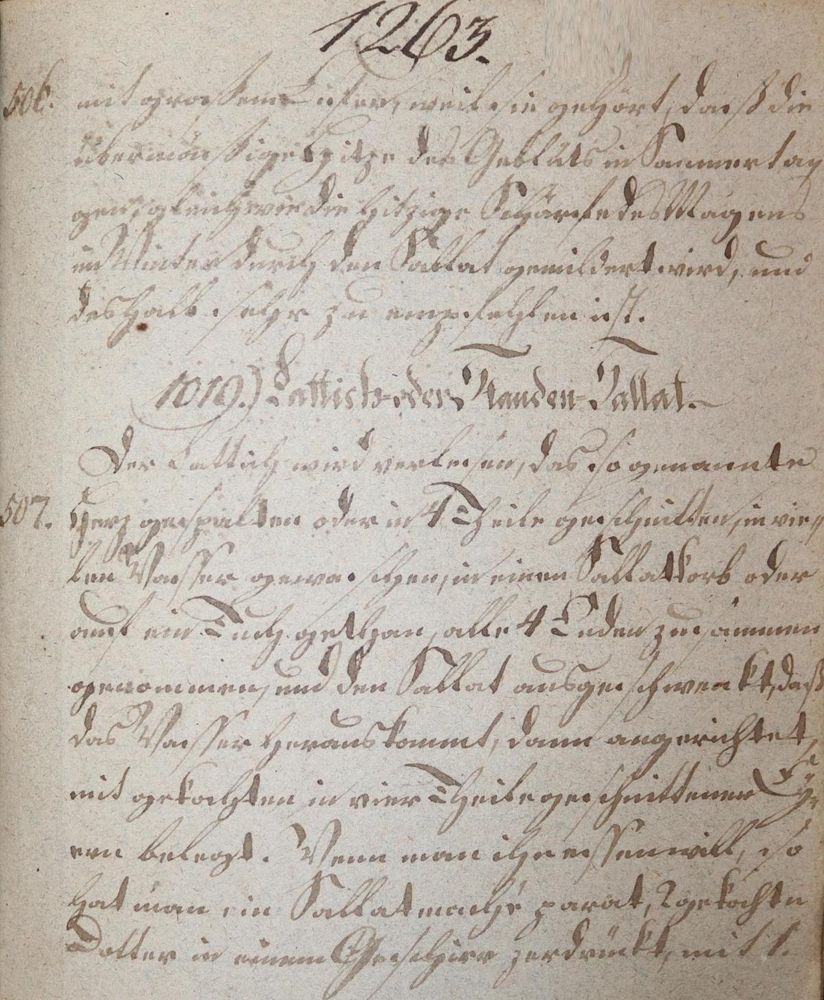 1263.
506. mit grossem Eifer, weil sie gehört, daß die
übermässige Hitze des Geblüts in Sommertä
gen, gleichwie die hitzige Schärfe des Magens
im Winter durch den Sallat gemildert wird, und
deshalb sehr zu empfehlen ist.
1019.) Lattich- oder Stauden-Sallat.
Der Lattich wird verlesen, das sogenannte
507. Herz gespalten oder in 4 Theile geschnitten, in vie=
len Wasser gewaschen, in einen Sallatkorb oder
auf ein Tuch gethan, alle 4 Enden zusammen
genommen, und den Sallat ausgeschwenkt, daß
das Wasser herauskommt, dann angerichtet,
mit gekochten, in vier Theile geschnittenen Ey=
ern belegt. Wenn man ihn essen will, so
hat man ein Sallatmaché parat, 2 gekochte
Dotter in einem Geschirr zerdrückt, mit 1.